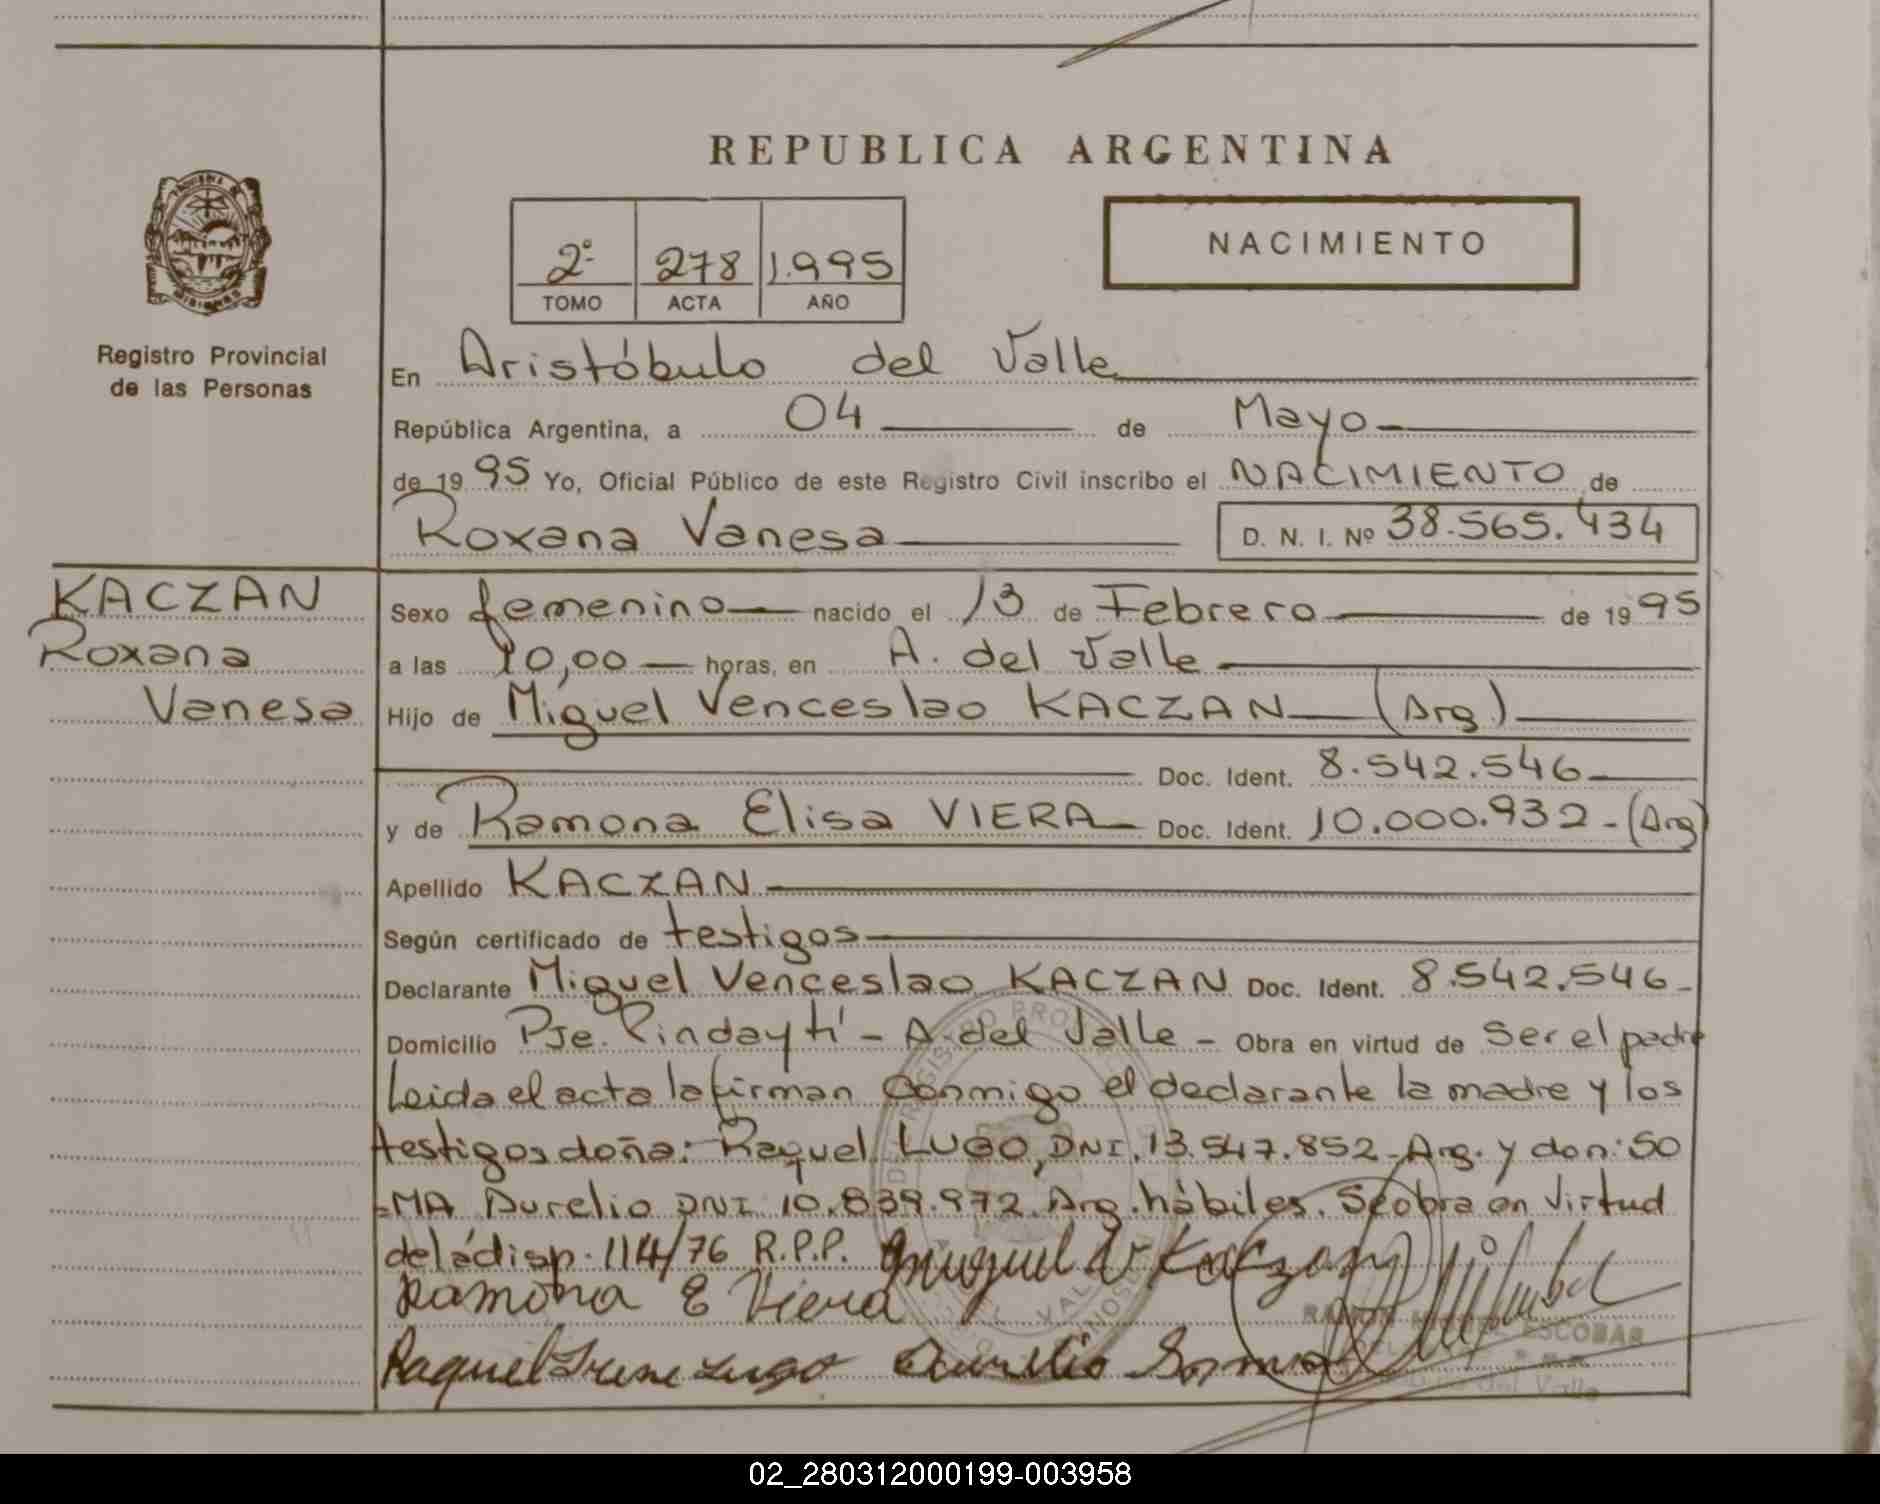 REPUBLICA ARGENTINA
NACIMIENTO
2º 278 1.995
TOMO ACTA AÑO
Registro Provincial
de las Personas
En Aristóbulo del Valle
República Argentina, a 04 de Mayo
de 1995 Yo, Oficial Público de este Registro Civil inscribo el NACIMIENTO de
Roxana Vanesa D. N. I. Nº 38.565.434
KACZAN
Roxana
Vanesa
Sexo femenino nacido el 13 de Febrero de 1995
a las 10,00 horas, en A. del Valle
Hijo de Miguel Venceslao KACZAN (Arg.)
Doc. Ident. 8.542.546
y de Ramona Elisa VIERA Doc. Ident. 10.000.932-(Arg)
Apellido KACZAN
Según certificado de testigos
Declarante Miguel Venceslao KACZAN Doc. Ident. 8.542.546-
Domicilio Pje. Pindaytí - A. del Valle - Obra en virtud de ser el padre
Leida el acta la firman conmigo el declarante la madre y los
testigos doña: Raquel LUGO, DNI. 13.547.852-Arg. y don: SO
-MA Aurelio DNI 10.839.972. Arg. hábiles. Se obra en virtud
de la disp. 114/76 R.P.P. Miguel V Kaczan
Ramona E Viera
RAMON MIGUEL ESCOBAR
Raquel Irene Lugo Aurelio Soma
del Valle
02_280312000199-003958